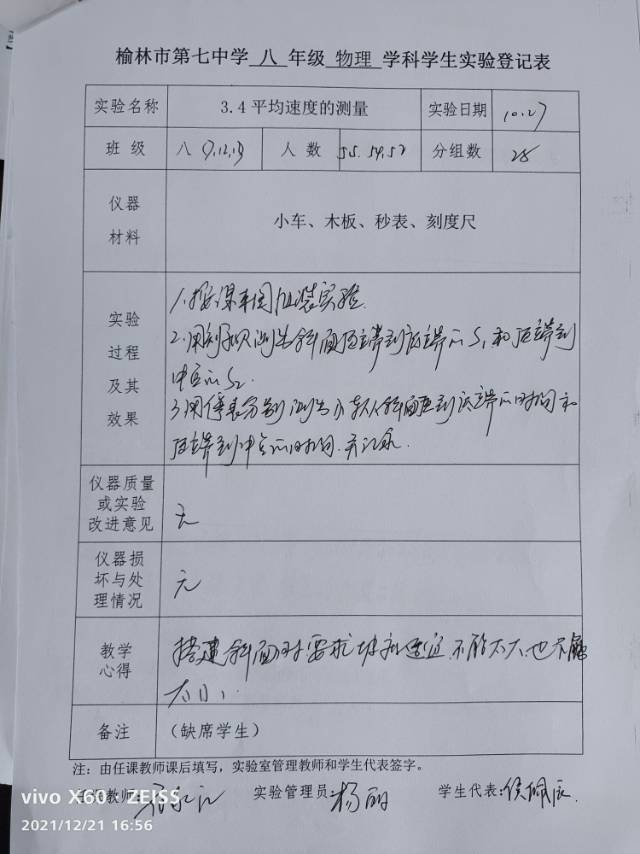 榆林市第七中学 八 年级 物理 学科学生实验登记表
实验名称 3.4平均速度的测量 实验日期 10.27
班 级 八 人 数 55.54.52 分组数 28
仪器
材料
小车、木板、秒表、刻度尺
实验
过程
及其
效果
1.按课本图组装实验
2.用刻度尺测出斜面顶端到底端的S1和顶端到
中点的S2
3.用停表分别测出小车从斜面顶到底端的时间和
顶端到中点的时间.并记录
仪器质量
或实验
改进意见
无
仪器损
坏与处
理情况
无
教学
心得
搭建斜面时要求坡度适宜.不能太大也不能
太小
备注 (缺席学生)
注:由任课教师课后填写,实验室管理教师和学生代表签字。
教师: 实验管理员:杨丽 学生代表:侯佩辰
vivo X60 ZEISS
2021/12/21 16:56